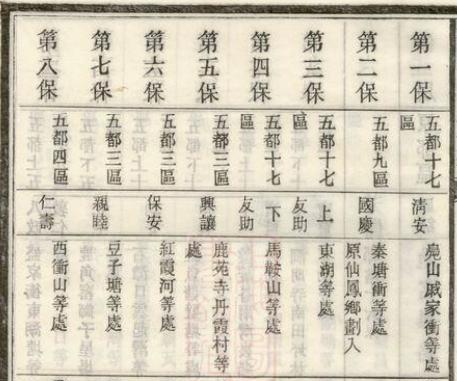 第一保
五都十七
區
淸安
山戚家衝等處
第二保
五都九區
國慶
秦塘衝等處
原仙鳳鄉劃入
第三保
五都十七
區
上
友助
東湖等處
第四保
五都十七
區
下
友助
馬鞍山等處
第五保
五都三區
興讓
鹿苑寺丹霞村等
處
第六保
五都三區
保安
紅霞河等處
第七保
五都三區
親睦
豆子塘等處
第八保
五都四區
仁壽
西衝山等處